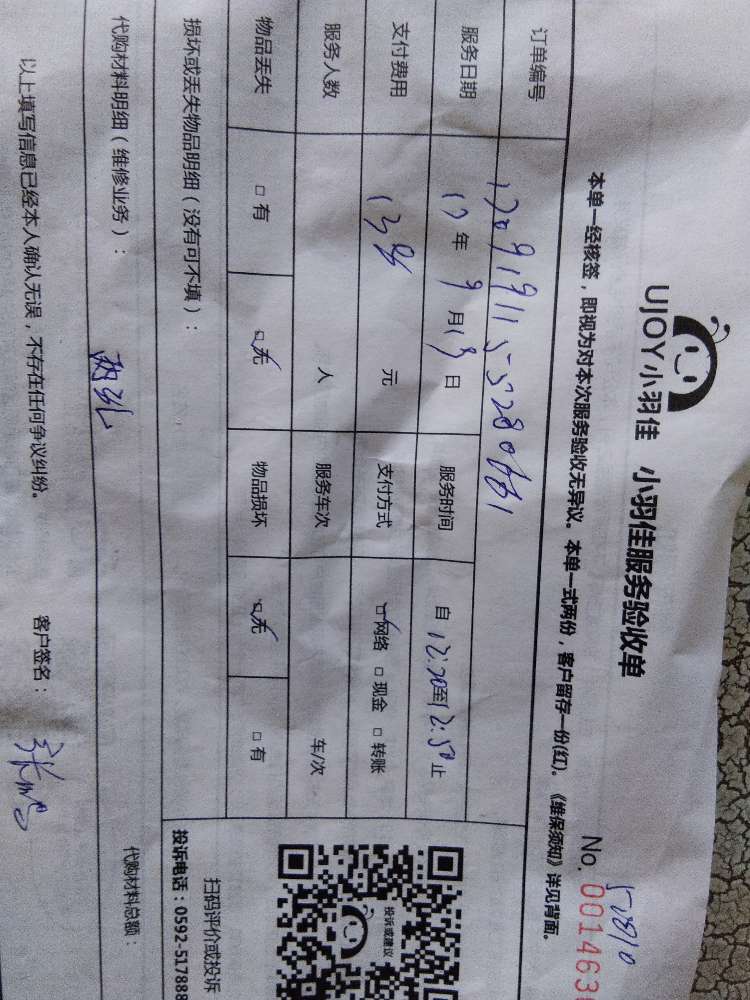 UJOY小羽佳 小羽佳服务验收单
No. 001463
本单一经核签，即视为对本次服务验收无异议。本单一式两份，客户留存一份(红)。《维保须知》详见背面。
订单编号
服务日期 17 年 9 月 19 日 服务时间 自 12:20至12:50止
支付费用 元 支付方式 网络 □ 现金 □ 转账
服务人数 人 服务车次 车/次
物品丢失 □ 有 □ 无 物品损坏 □ 无 □ 有
损坏或丢失物品明细（没有可不填）：
投诉或建议
扫码评价或投诉
投诉电话：0592-517888
代购材料明细（维修业务）：
两孔
代购材料总额：
以上填写信息已经本人确认无误，不存在任何争议纠纷。 客户签名：